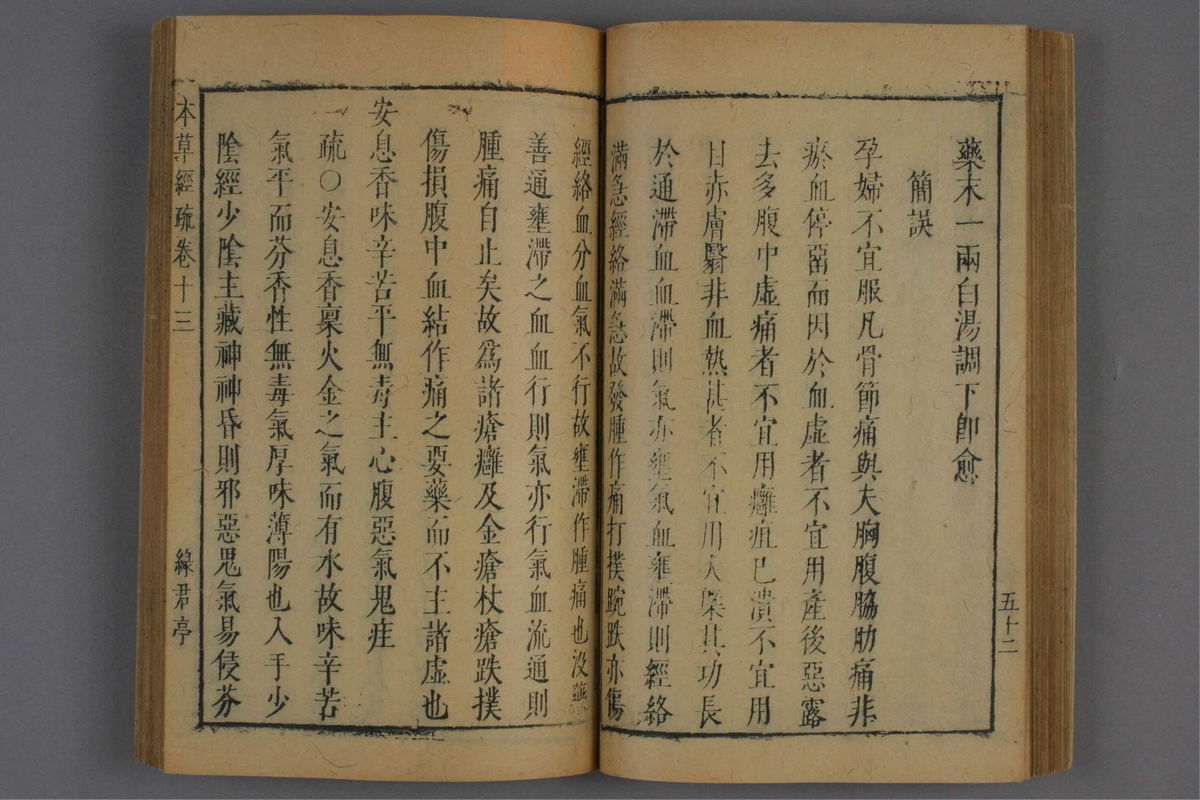 藥末一兩白湯調下卽愈
簡誤
孕婦不宜服凡骨節痛與夫胸腹脇肋痛非
瘀血停畱而因於血虛者不宜用產後惡露
去多腹中虛痛者不宜用癰疽已潰不宜用
目赤膚翳非血熱甚者不宜用大槩其功長
於通滯血血滯則氣亦壅氣血壅滯則經絡
滿急經絡滿急故發腫作痛打撲踠跌亦傷
五十二
經絡血分血氣不行故壅滯作腫痛也沒藥
善通壅滯之血血行則氣亦行氣血流通則
腫痛自止矣故爲諸瘡癰及金瘡杖瘡跌撲
傷損腹中血結作痛之要藥而不主諸虛也
安息香味辛苦平無毒主心腹惡氣鬼疰
疏○安息香稟火金之氣而有水故味辛苦
氣平而芬香性無毒氣厚味薄陽也入手少
陰經少陰主藏神神昏則邪惡鬼氣易侵芬
本草經疏卷十三
綠君亭